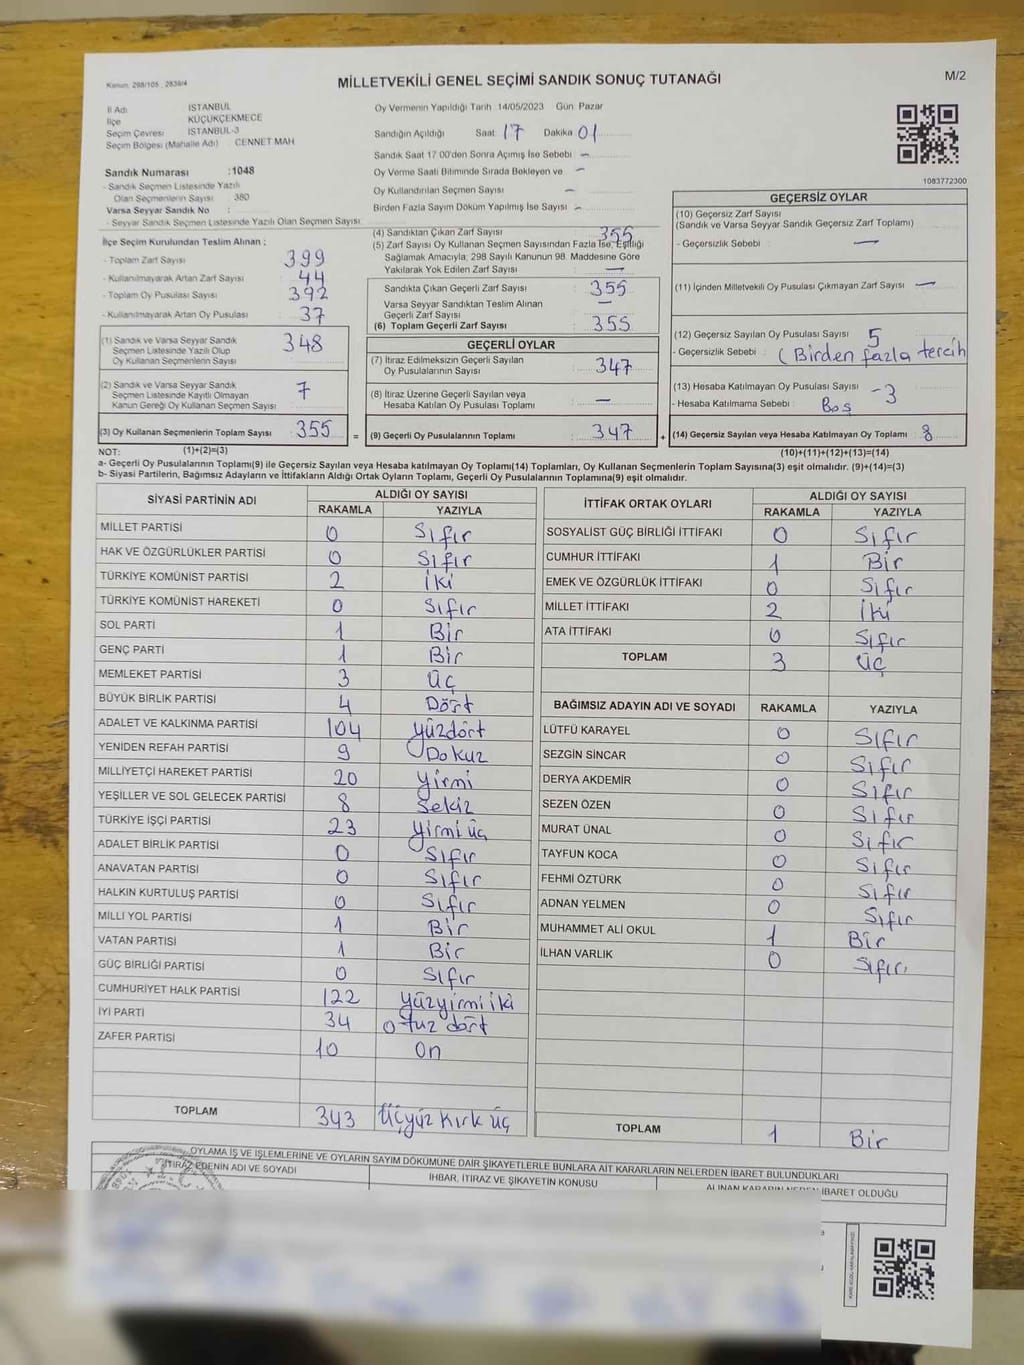 Kanun: 298/105 , 2839/4
MİLLETVEKİLİ GENEL SEÇİMİ SANDIK SONUÇ TUTANAĞI
M/2
İl Adı İSTANBUL
İlçe KÜÇÜKÇEKMECE
Seçim Çevresi İSTANBUL-3
Seçim Bölgesi (Mahalle Adı) CENNET MAH
Oy Vermenin Yapıldığı Tarih 14/05/2023 Gün Pazar
Sandığın Açıldığı Saat 17 Dakika 01
Sandık Saat 17 00'den Sonra Açımış İse Sebebi -
Oy Verme Saati Bitiminde Sırada Bekleyen ve -
Oy Kullandırılan Seçmen Sayısı -
Birden Fazla Sayım Döküm Yapılmış İse Sayısı -
1083772300
Sandık Numarası :1048
- Sandık Seçmen Listesinde Yazılı
Olan Seçmenlerin Sayısı 380
Varsa Seyyar Sandık No :
- Seyyar Sandık Seçmen Listesinde Yazılı Olan Seçmen Sayısı
İlçe Seçim Kurulundan Teslim Alınan :
- Toplam Zarf Sayısı 399
- Kullanılmayarak Artan Zarf Sayısı 44
- Toplam Oy Pusulası Sayısı 392
- Kullanılmayarak Artan Oy Pusulası 37
(1) Sandık ve Varsa Seyyar Sandık
Seçmen Listesinde Yazılı Olup
Oy Kullanan Seçmenlerin Sayısı
348
(2) Sandık ve Varsa Seyyar Sandık
Seçmen Listesinde Kayıtlı Olmayan
Kanun Gereği Oy Kullanan Seçmen Sayısı
7
(3) Oy Kullanan Seçmenlerin Toplam Sayısı 355
(4) Sandıktan Çıkan Zarf Sayısı 355
(5) Zarf Sayısı Oy Kullanan Seçmen Sayısından Fazla İse, Eşitliği
Sağlamak Amacıyla, 298 Sayılı Kanunun 98. Maddesine Göre
Yakılarak Yok Edilen Zarf Sayısı -
Sandıkta Çıkan Geçerli Zarf Sayısı 355
Varsa Seyyar Sandıktan Teslim Alınan
Geçerli Zarf Sayısı -
(6) Toplam Geçerli Zarf Sayısı 355
GEÇERLİ OYLAR
(7) İtiraz Edilmeksizin Geçerli Sayılan
Oy Pusulalarının Sayısı 347
(8) İtiraz Üzerine Geçerli Sayılan veya
Hesaba Katılan Oy Pusulası Toplamı -
= (9) Geçerli Oy Pusulalarının Toplamı 347 +
GEÇERSİZ OYLAR
(10) Geçersiz Zarf Sayısı
(Sandık ve Varsa Seyyar Sandık Geçersiz Zarf Toplamı)
- Geçersizlik Sebebi : -
(11) İçinden Milletvekili Oy Pusulası Çıkmayan Zarf Sayısı -
(12) Geçersiz Sayılan Oy Pusulası Sayısı 5
- Geçersizlik Sebebi : (Birden fazla tercih
(13) Hesaba Katılmayan Oy Pusulası Sayısı - 3
- Hesaba Katılmama Sebebi : Boş
(14) Geçersiz Sayılan veya Hesaba Katılmayan Oy Toplamı : 8
NOT: (1)+(2)=(3) (10)+(11)+(12)+(13)=(14)
a- Geçerli Oy Pusulalarının Toplamı(9) ile Geçersiz Sayılan veya Hesaba katılmayan Oy Toplamı(14) Toplamları, Oy Kullanan Seçmenlerin Toplam Sayısına(3) eşit olmalıdır. (9)+(14)=(3)
b- Siyasi Partilerin, Bağımsız Adayların ve İttifakların Aldığı Ortak Oyların Toplamı, Geçerli Oy Pusulalarının Toplamına(9) eşit olmalıdır.
SİYASİ PARTİNİN ADI ALDIĞI OY SAYISI
RAKAMLA YAZIYLA
MİLLET PARTİSİ 0 Sıfır
HAK VE ÖZGÜRLÜKLER PARTİSİ 0 Sıfır
TÜRKİYE KOMÜNİST PARTİSİ 2 İki
TÜRKİYE KOMÜNİST HAREKETİ 0 Sıfır
SOL PARTİ 1 Bir
GENÇ PARTİ 1 Bir
MEMLEKET PARTİSİ 3 Üç
BÜYÜK BİRLİK PARTİSİ 4 Dört
ADALET VE KALKINMA PARTİSİ 104 yüzdört
YENİDEN REFAH PARTİSİ 9 Dokuz
MİLLİYETÇİ HAREKET PARTİSİ 20 yirmi
YEŞİLLER VE SOL GELECEK PARTİSİ 8 Sekiz
TÜRKİYE İŞÇİ PARTİSİ 23 yirmi üç
ADALET BİRLİK PARTİSİ 0 Sıfır
ANAVATAN PARTİSİ 0 Sıfır
HALKIN KURTULUŞ PARTİSİ 0 Sıfır
MİLLİ YOL PARTİSİ 1 Bir
VATAN PARTİSİ 1 Bir
GÜÇ BİRLİĞİ PARTİSİ 0 Sıfır
CUMHURİYET HALK PARTİSİ 122 yüzyirmi iki
İYİ PARTİ 34 otuz dört
ZAFER PARTİSİ 10 On
TOPLAM 343 Üçyüz Kırk üç
İTTİFAK ORTAK OYLARI ALDIĞI OY SAYISI
RAKAMLA YAZIYLA
SOSYALİST GÜÇ BİRLİĞİ İTTİFAKI 0 Sıfır
CUMHUR İTTİFAKI 1 Bir
EMEK VE ÖZGÜRLÜK İTTİFAKI 0 Sıfır
MİLLET İTTİFAKI 2 İki
ATA İTTİFAKI 0 Sıfır
TOPLAM 3 Üç
BAĞIMSIZ ADAYIN ADI VE SOYADI RAKAMLA YAZIYLA
LÜTFÜ KARAYEL 0 Sıfır
SEZGİN SİNCAR 0 Sıfır
DERYA AKDEMİR 0 Sıfır
SEZEN ÖZEN 0 Sıfır
MURAT ÜNAL 0 Sıfır
TAYFUN KOCA 0 Sıfır
FEHMİ ÖZTÜRK 0 Sıfır
ADNAN YELMEN 0 Sıfır
MUHAMMET ALİ OKUL 1 Bir
İLHAN VARLIK 0 Sıfır
TOPLAM 1 Bir
OYLAMA İŞ VE İŞLEMLERİNE VE OYLARIN SAYIM DÖKÜMÜNE DAİR ŞİKAYETLERLE BUNLARA AİT KARARLARIN NELERDEN İBARET BULUNDUKLARI
İTİRAZ EDENİN ADI VE SOYADI
İHBAR, İTİRAZ VE ŞİKAYETİN KONUSU
ALINAN KARARIN NEDEN İBARET OLDUĞU